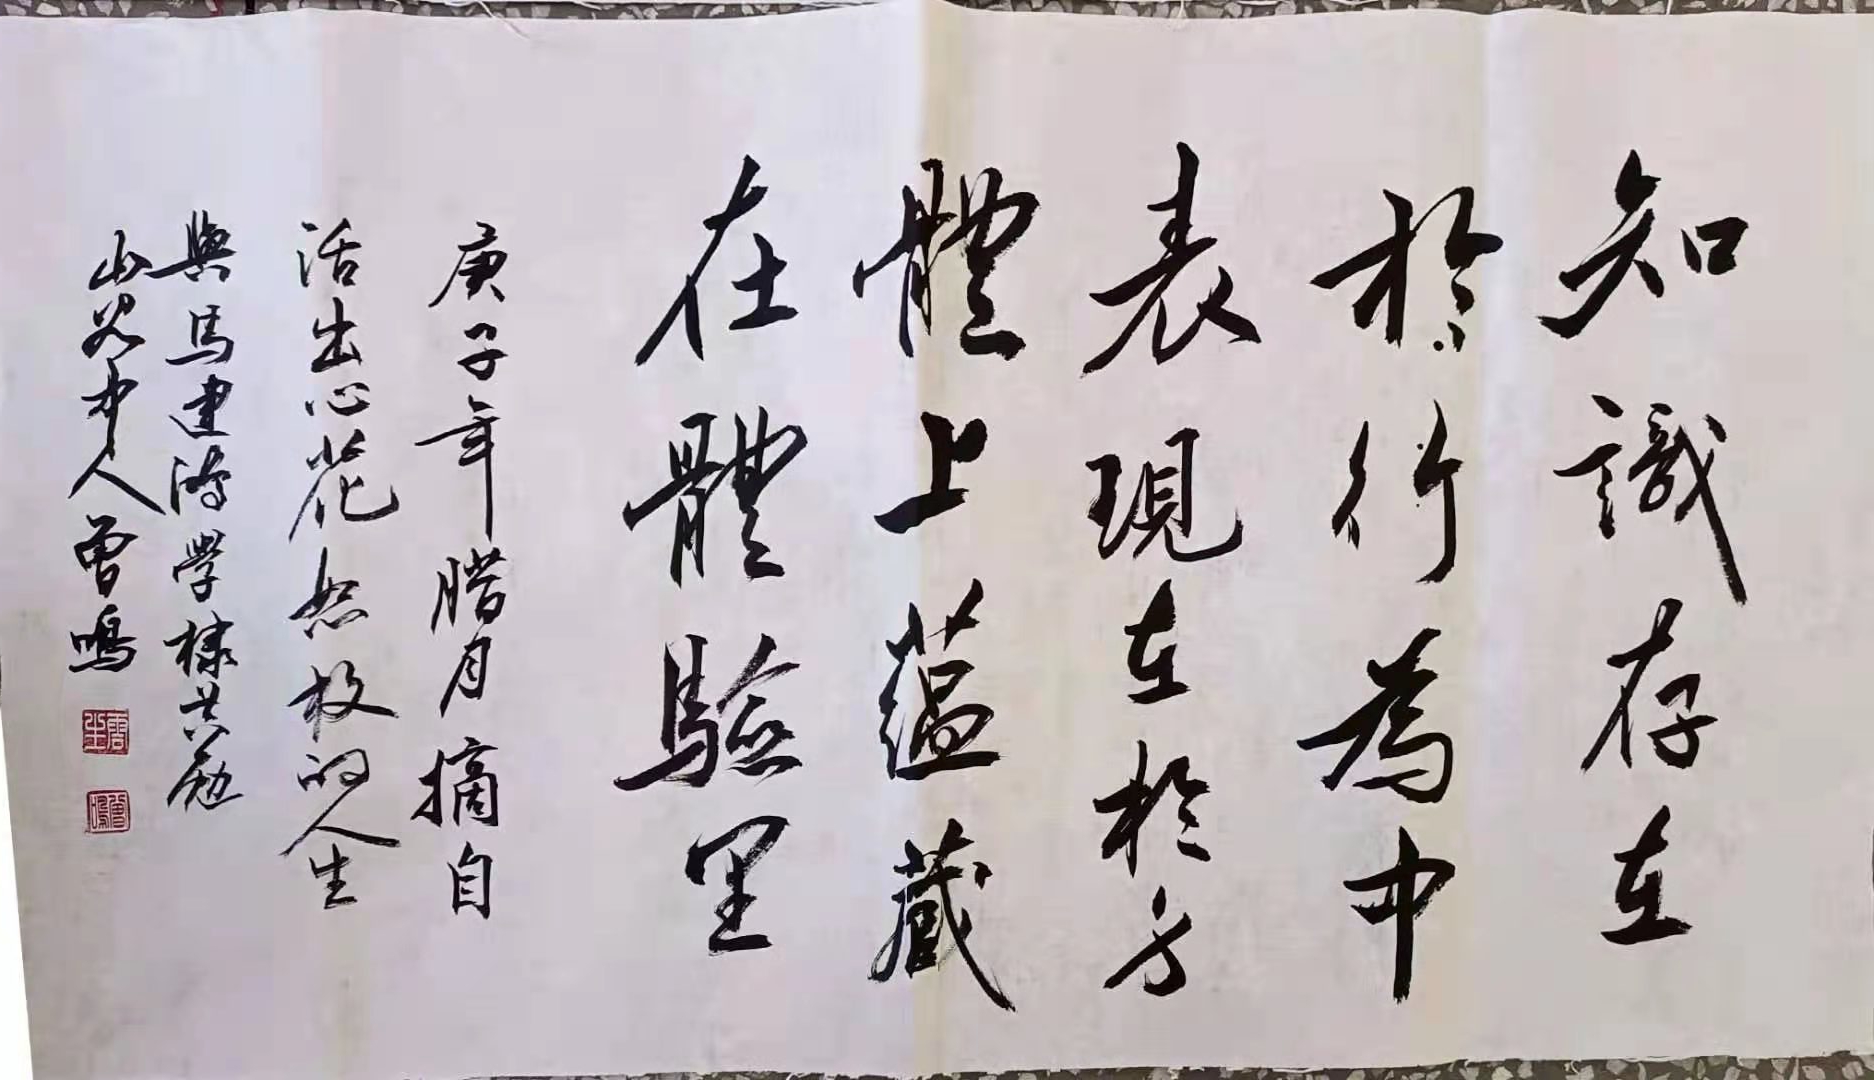 知識存在
於行為中
表現在於身
體上蘊藏
在體驗里
庚子年腊月摘自
活出心花怒放的人生
與馬建涛學棣共勉
山谷中人曾鳴
曾鳴